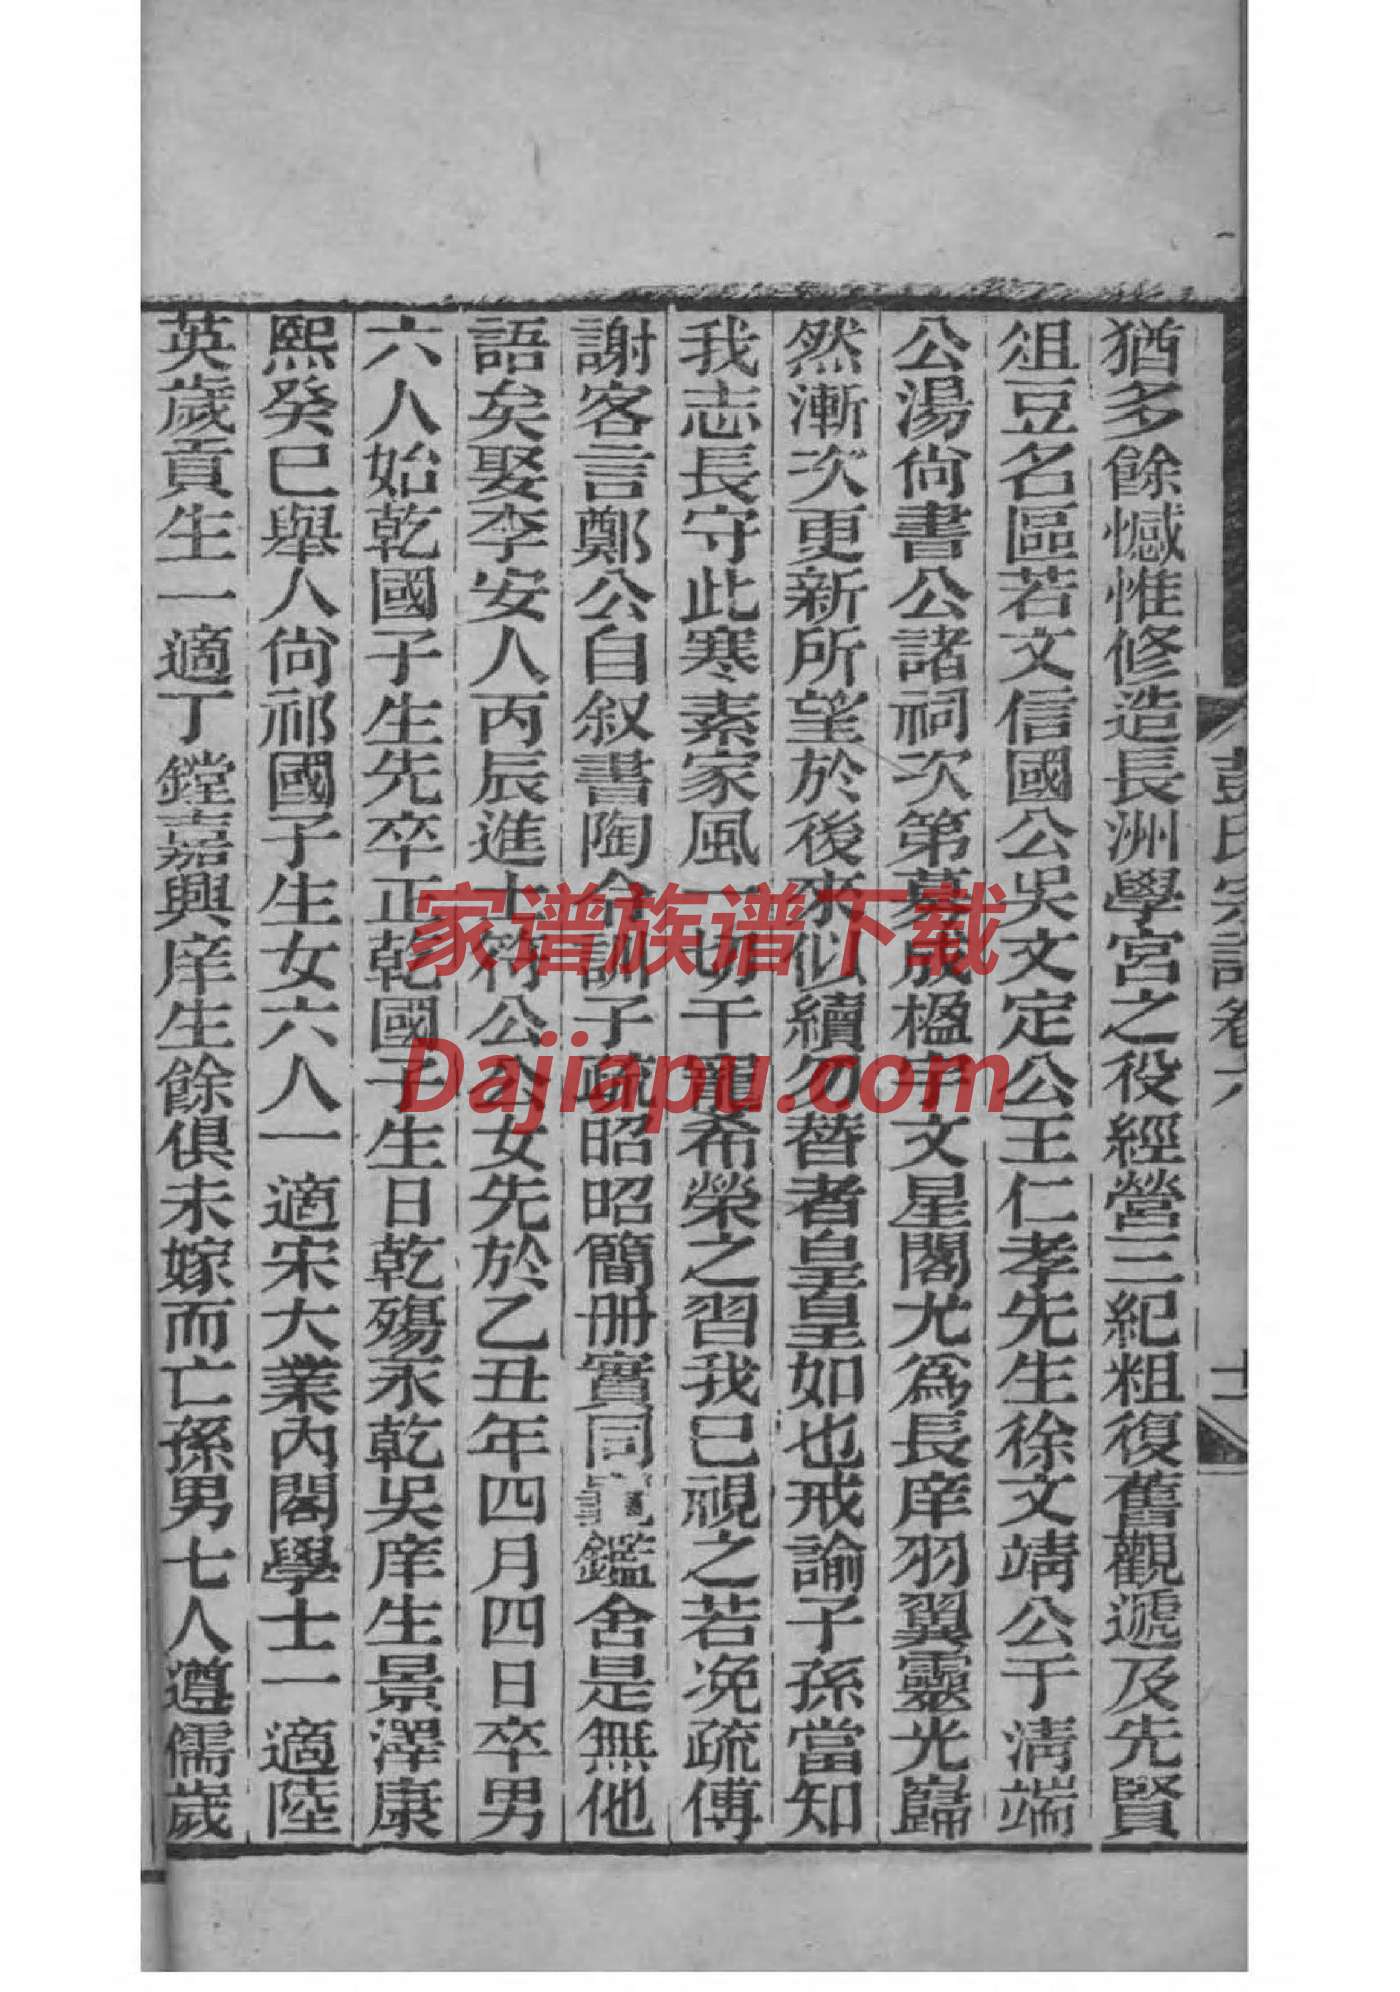 彭氏宗譜卷六
猶多餘憾惟修造長洲學宮之役經營三紀粗復舊觀遞及先賢
俎豆名區若文信國公吳文定公王仁孝先生徐文靖公于淸端
公湯尙書公諸祠次第募成楹宇文星閣尤爲長庠羽翼靈光巋
然漸次更新所望於後來似續勿替者皇皇如也戒諭子孫當知
我志長守此寒素家風一切干寵希榮之習我已視之若浼疏傅
謝客言鄭公自叙書陶令訓子疏昭昭簡册實同龜鑑舍是無他
語矣娶李安人丙辰進士符公公女先於乙丑年四月四日卒男
六人始乾國子生先卒正乾國子生日乾殤永乾吳庠生景澤康
熙癸巳舉人尙祁國子生女六人一適宋大業內閣學士一適陸
英歲貢生一適丁鏜嘉興庠生餘俱未嫁而亡孫男七人遵儒歲
家谱族谱下载
Dajiapu.com